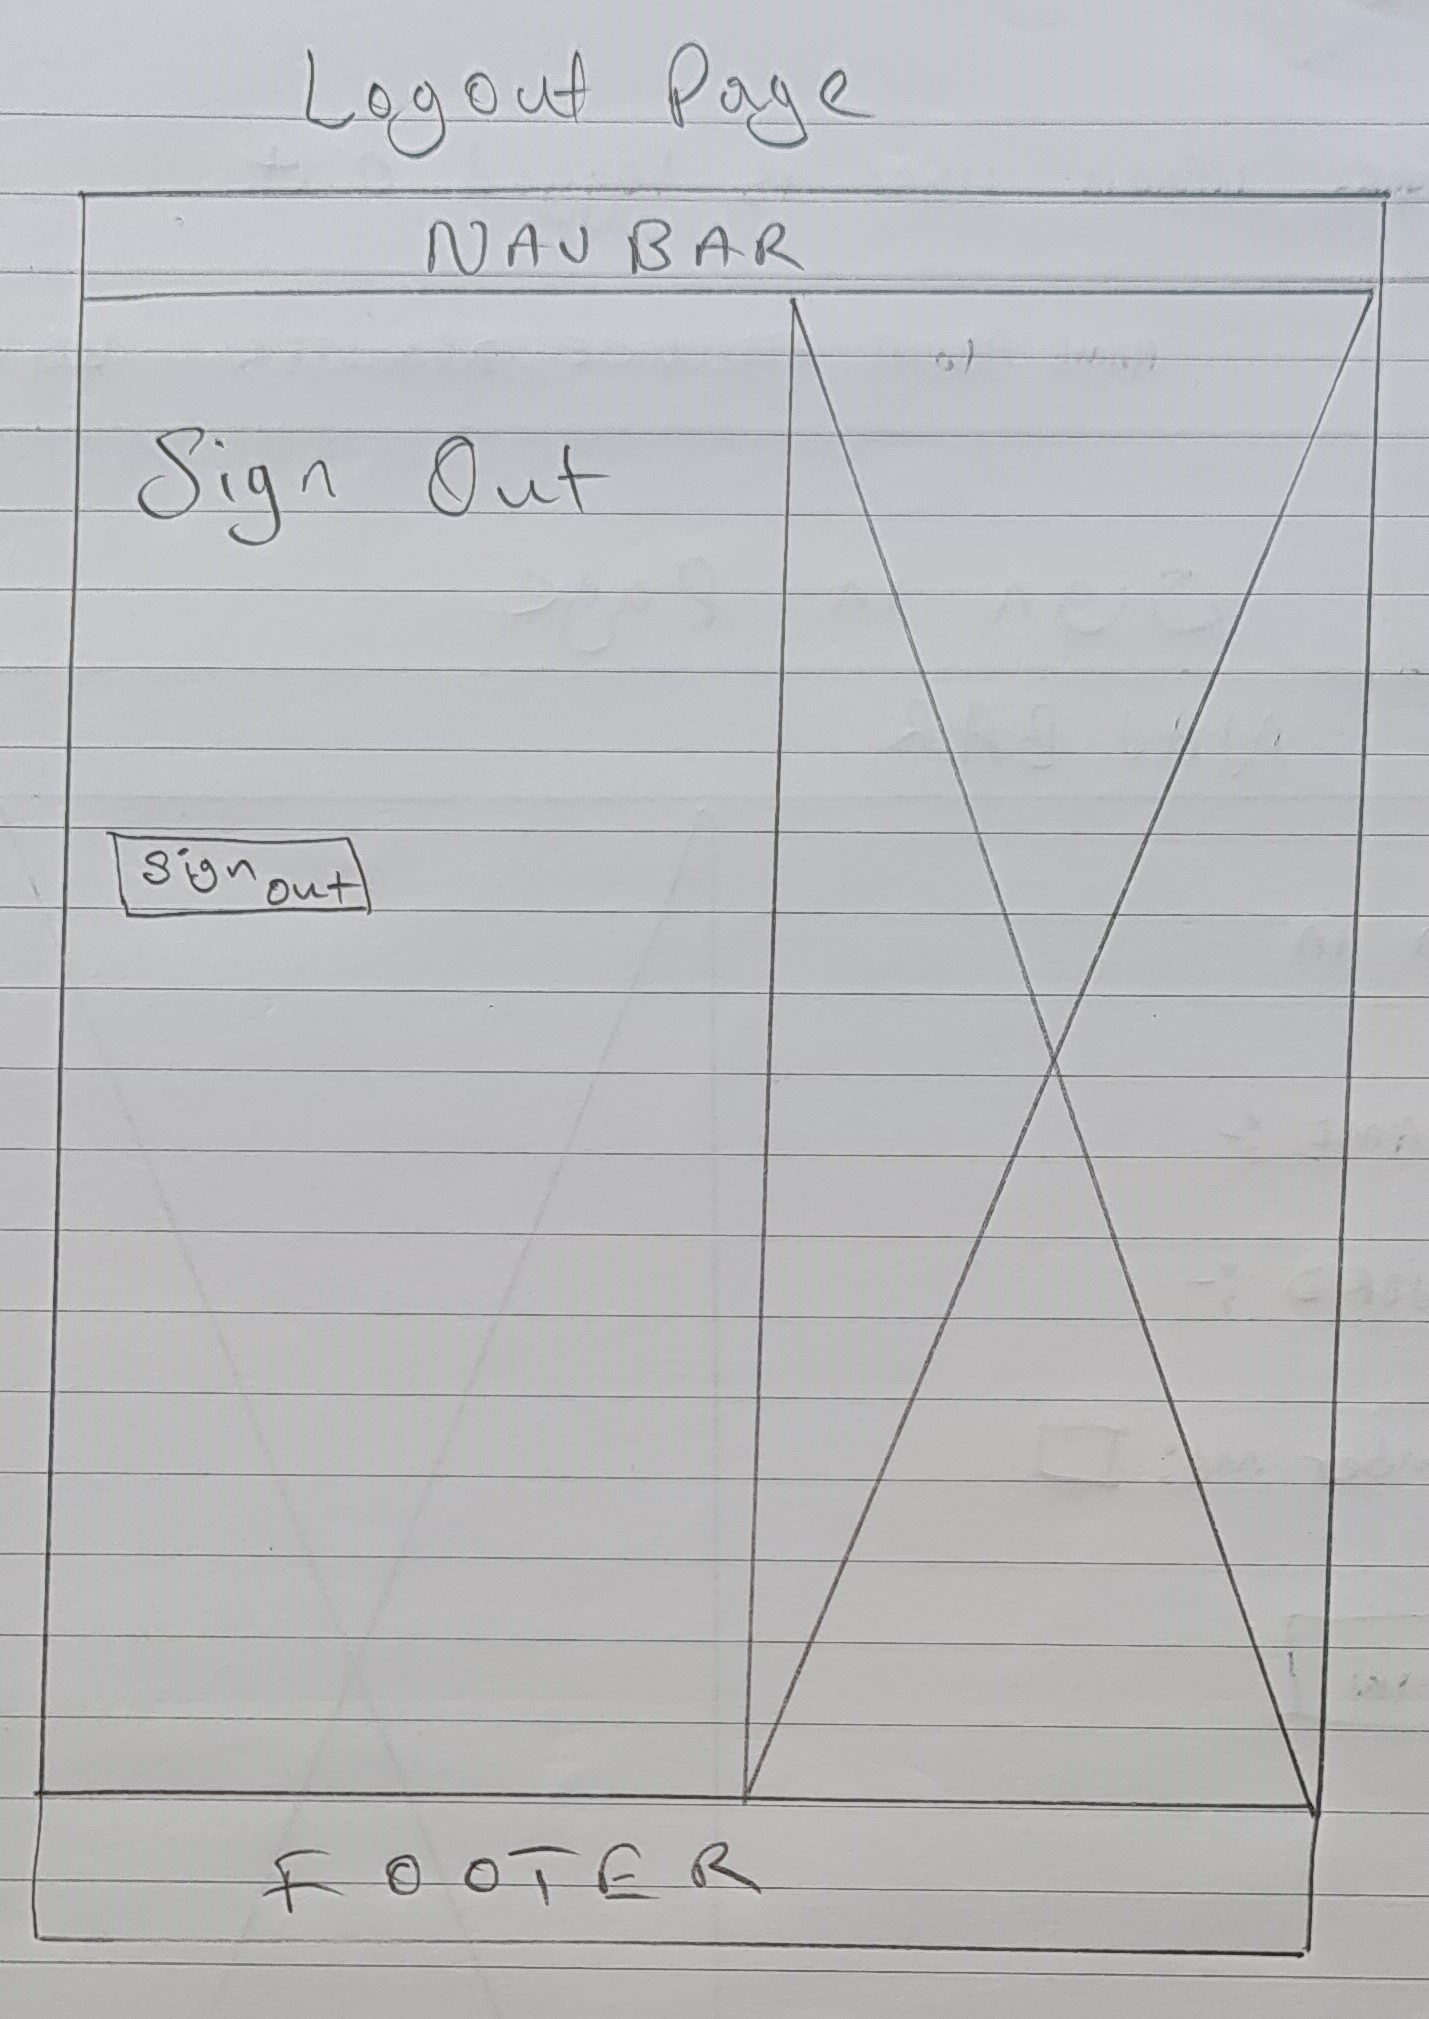 Logout Page
NAV BAR
Sign Out
Sign out
FOOTER